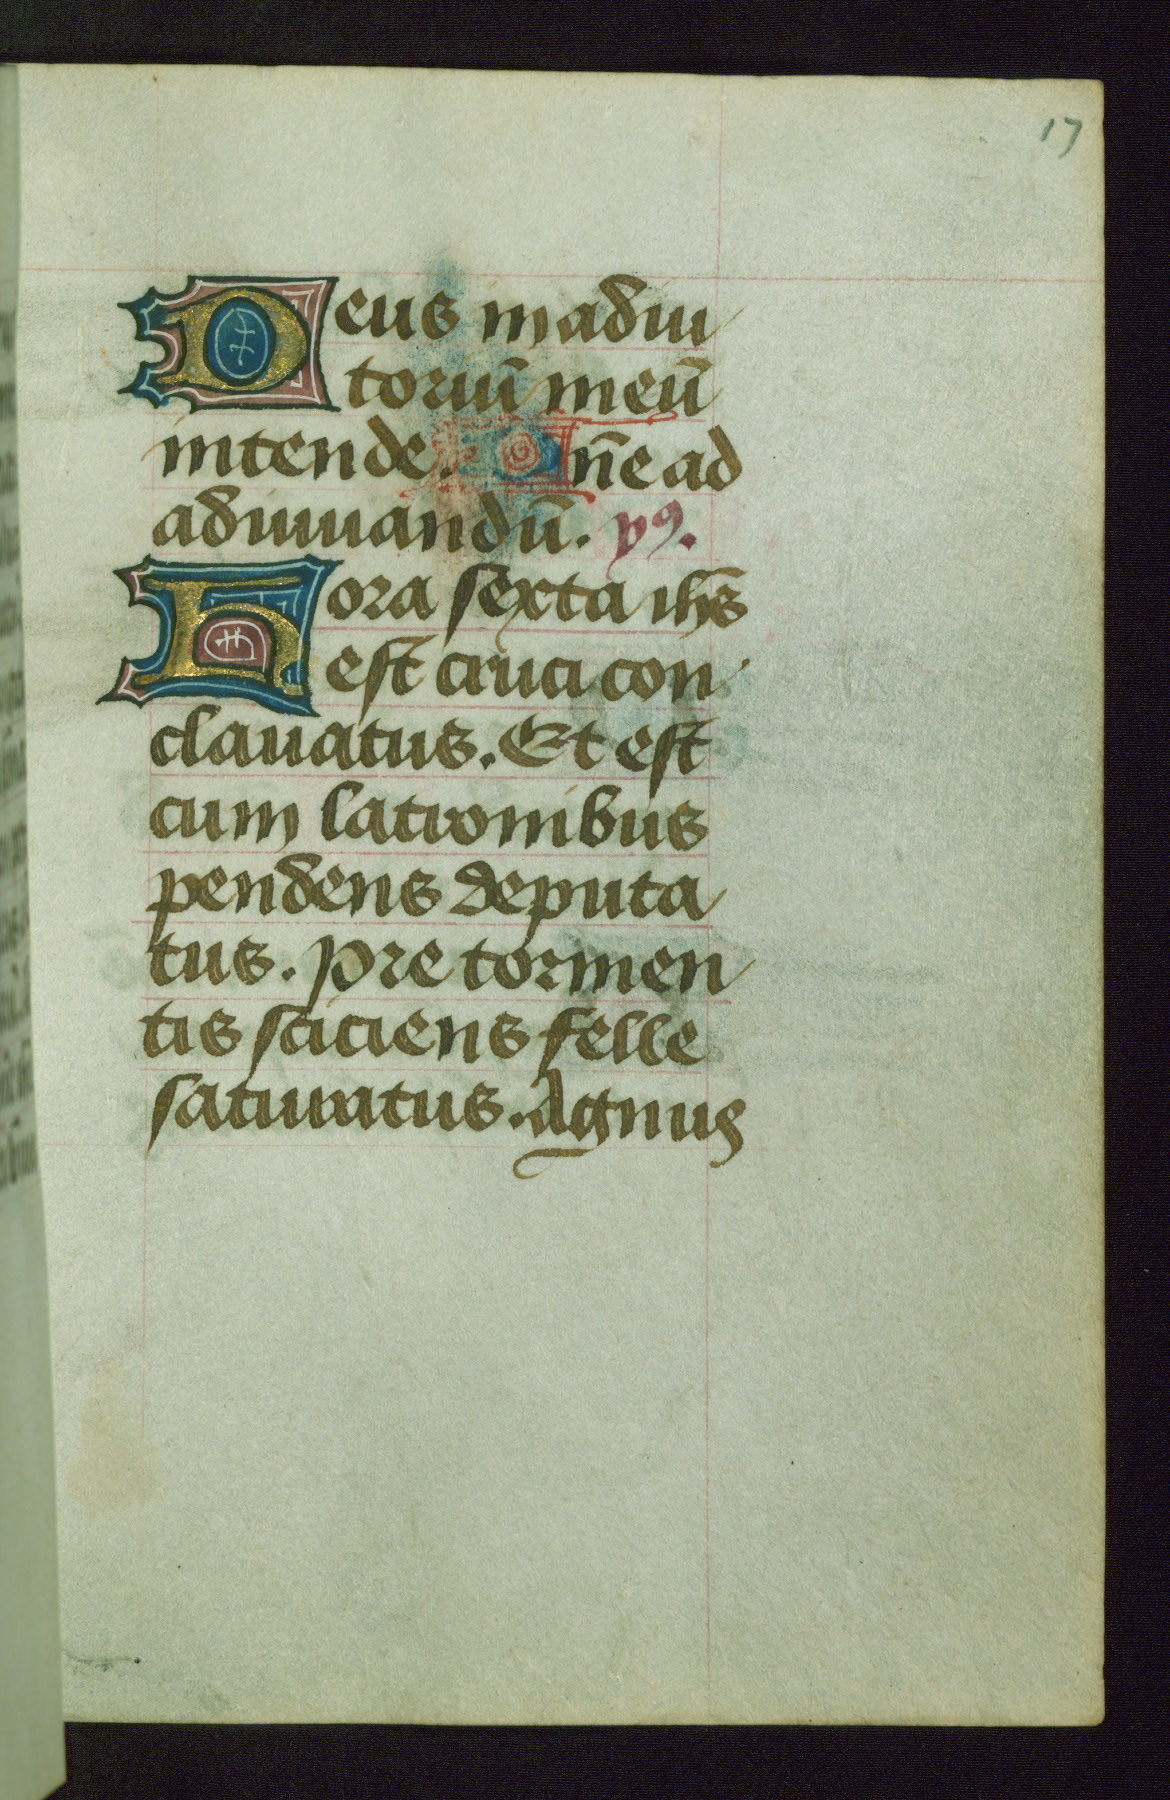 17
Deus in adiu
toriū meū
intende. Dn̄e ad
adiuuandū. ps.
Hora sexta ihs̄
est cruci con
clauatus. Et est
cum latronibus
pendens deputa
tus. Pre tormen
tis sciciens felle
saturatus. Agnus